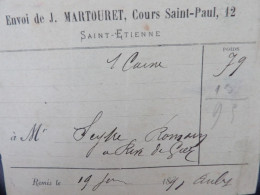 Envoi de J. MARTOURET, Cours Saint-Paul, 12
SAINT-ETIENNE
POIDS
1 Caisse 79
95
à Mr Seytre Romain
à Rive de Gier
Remis le 19 189